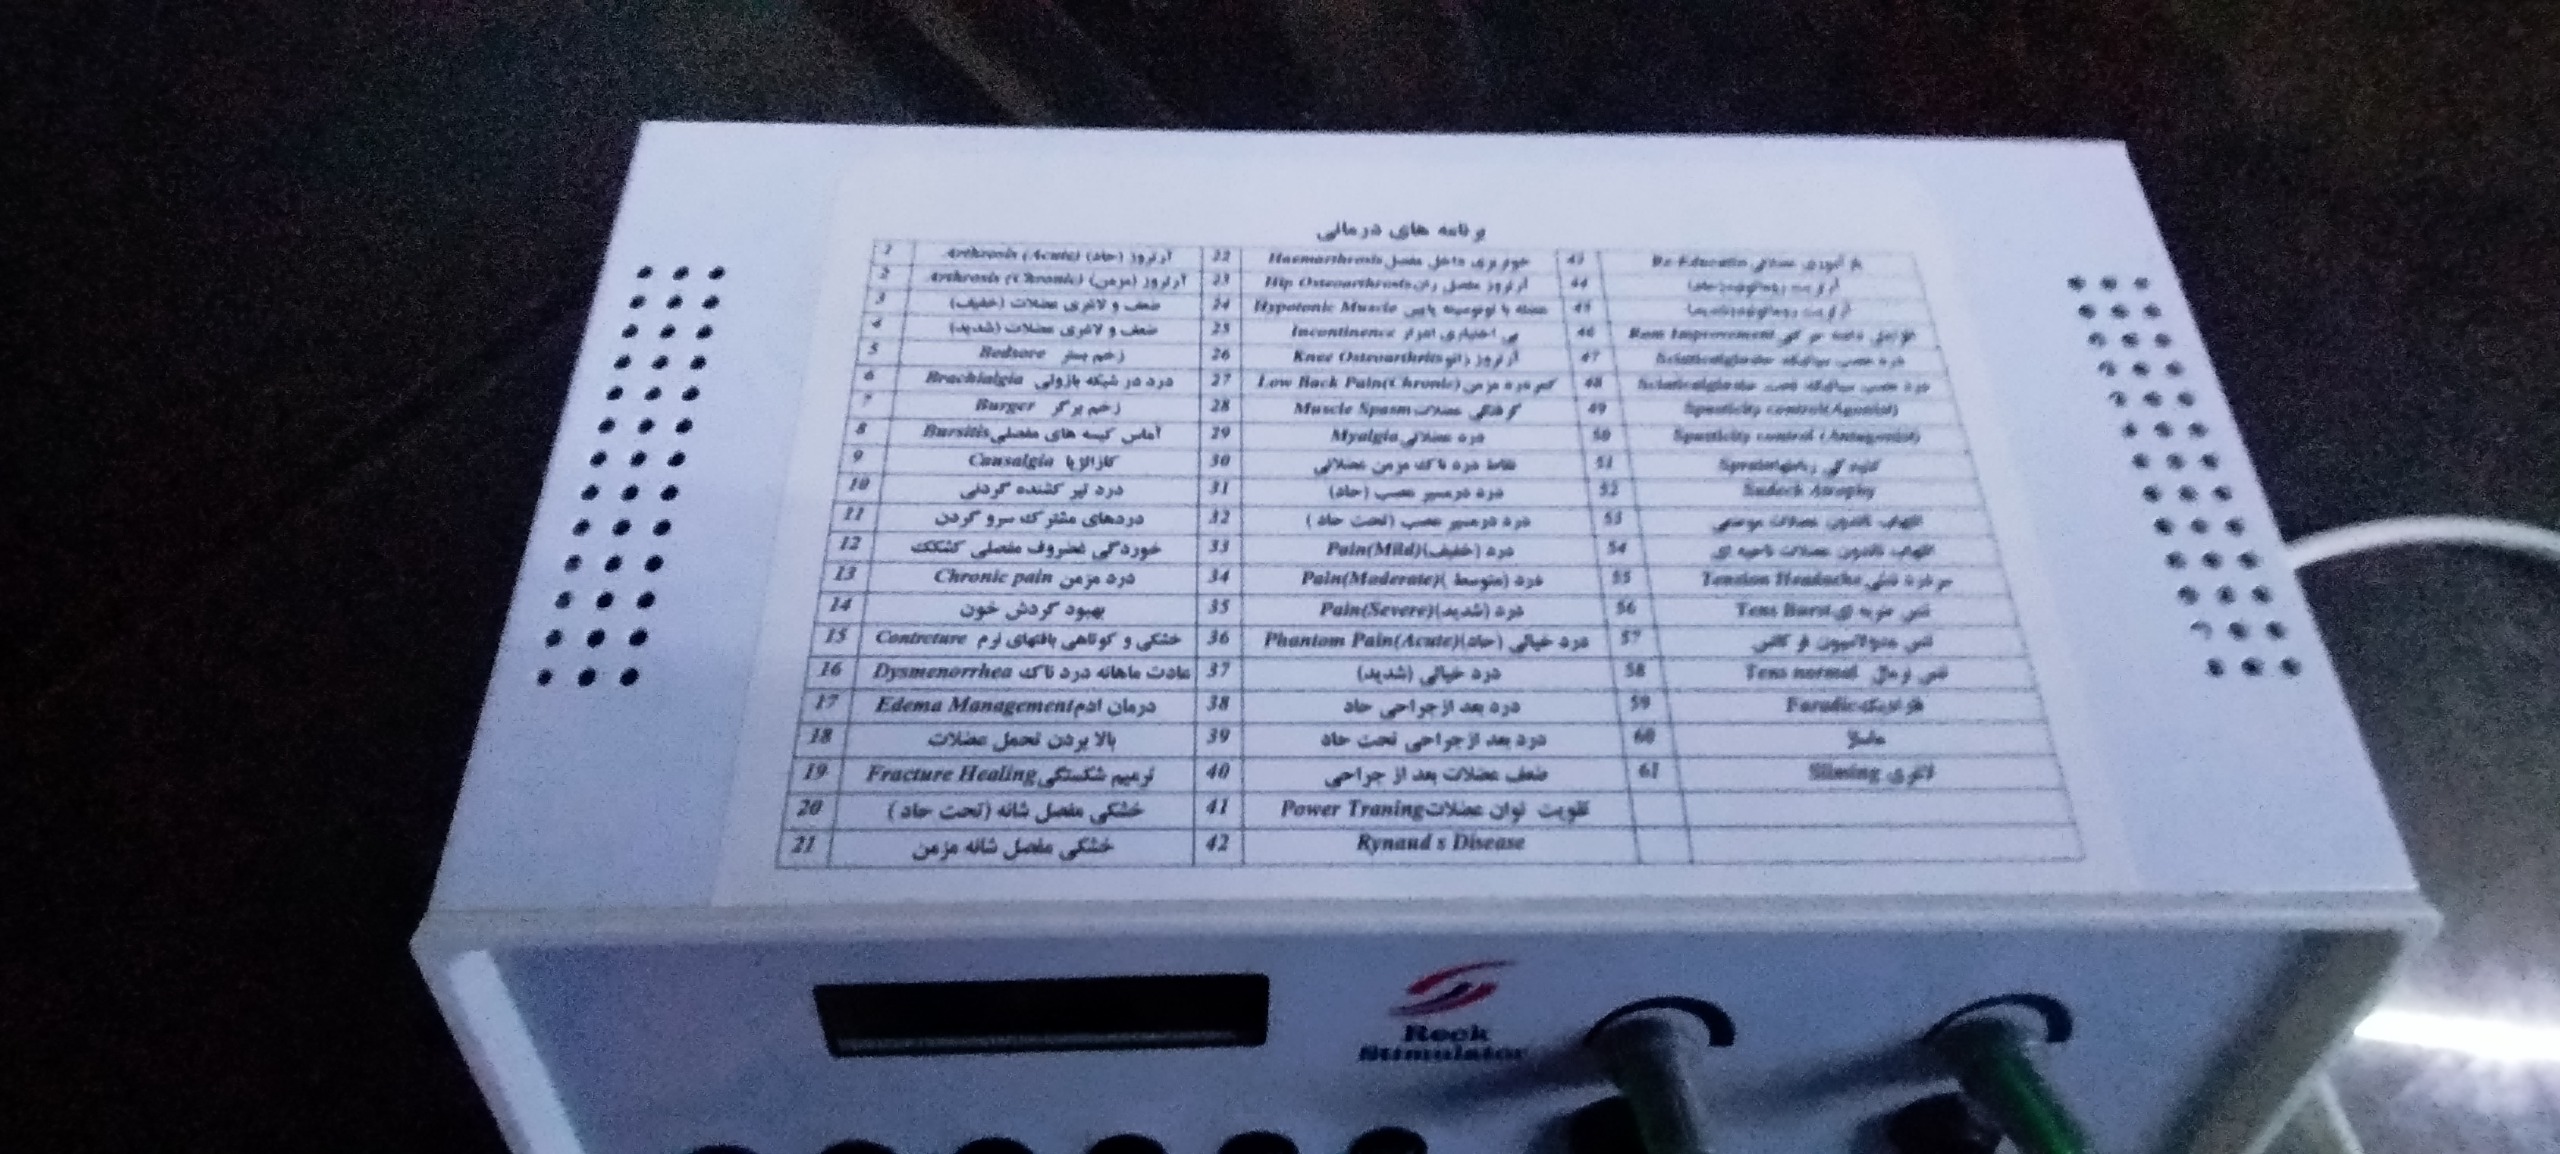 برنامه های درمانی
1 Arthrosis (Acute) آرتروز (حاد) 22 Haemarthrosis خونریزی داخل مفصل 43 Re Educatin باز آموزی عضلانی
2 Arthrosis (Chronic) آرتروز (مزمن) 23 Hip Osteoarthrosis آرتروز مفصل ران 44
3 ضعف و لاغری عضلات (خفیف) 24 Hypotonic Muscle عضله با تونوسیته پایین 45
4 ضعف و لاغری عضلات (شدید) 25 Incontinence بی اختیاری ادرار 46 Rom Improvement
5 Bedsore زخم بستر 26 Knee Osteoarthrits آرتروز زانو 47 درد عصب سیاتیک
6 Brachialgia درد در شبکه بازوئی 27 Low Back Pain(Chronic) کمر درد مزمن 48 درد عصب سیاتیک
7 Burger زخم برگر 28 Muscle Spasm گرفتگی عضلات 49 Spasticity control(Agonist)
8 Bursitis آماس کیسه های مفصلی 29 Myalgia درد عضلانی 50 Spasticity control (Antagonist)
9 Causalgia کازالژیا 30 نقاط درد ناک مزمن عضلانی 51
10 درد تیر کشنده گردنی 31 درد درمسیر عصب (حاد) 52 Sudeck Atrophy
11 دردهای مشترک سرو گردن 32 درد درمسیر عصب (تحت حاد) 53 التهاب تاندون عضلات موضعی
12 خوردگی غضروف مفصلی کشکک 33 Pain(Mild) درد (خفیف) 54 التهاب تاندون عضلات ناحیه ای
13 Chronic pain درد مزمن 34 Pain(Moderate) درد (متوسط) 55 Tension Headache سر درد تنشی
14 بهبود گردش خون 35 Pain(Severe) درد (شدید) 56 Tens Burst تنس ضربه ای
15 Contrcture خشکی و کوتاهی بافتهای نرم 36 Phantom Pain(Acute) درد خیالی (حاد) 57 تنس مدولاسیون فرکانس
16 Dysmenorrhea عادت ماهانه درد ناک 37 درد خیالی (شدید) 58 Tens normal تنس نرمال
17 Edema Management درمان ادم 38 درد بعد ازجراحی حاد 59 Faradic فارادیک
18 بالا بردن تحمل عضلات 39 درد بعد ازجراحی تحت حاد 60 ماساژ
19 Fracture Healing ترمیم شکستگی 40 ضعف عضلات بعد از جراحی 61 Sliming لاغری
20 خشکی مفصل شانه (تحت حاد) 41 Power Traning تقویت توان عضلات
21 خشکی مفصل شانه مزمن 42 Rynaud s Disease
Reck
Stimulator